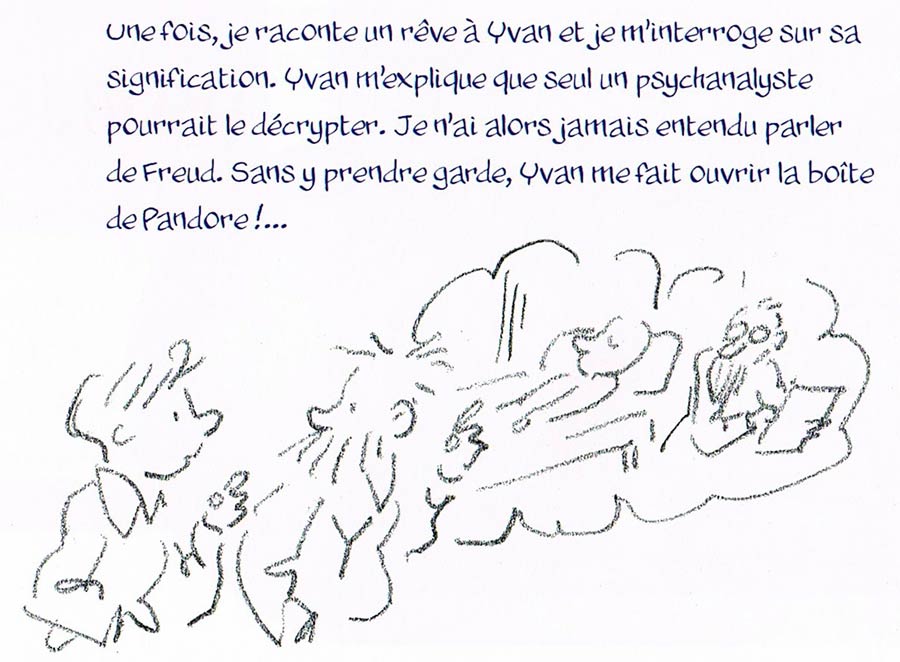 Une fois, je raconte un rêve à Yvan et je m'interroge sur sa
signification. Yvan m'explique que seul un psychanalyste
pourrait le décrypter. Je n'ai alors jamais entendu parler
de Freud. Sans y prendre garde, Yvan me fait ouvrir la boîte
de Pandore !...